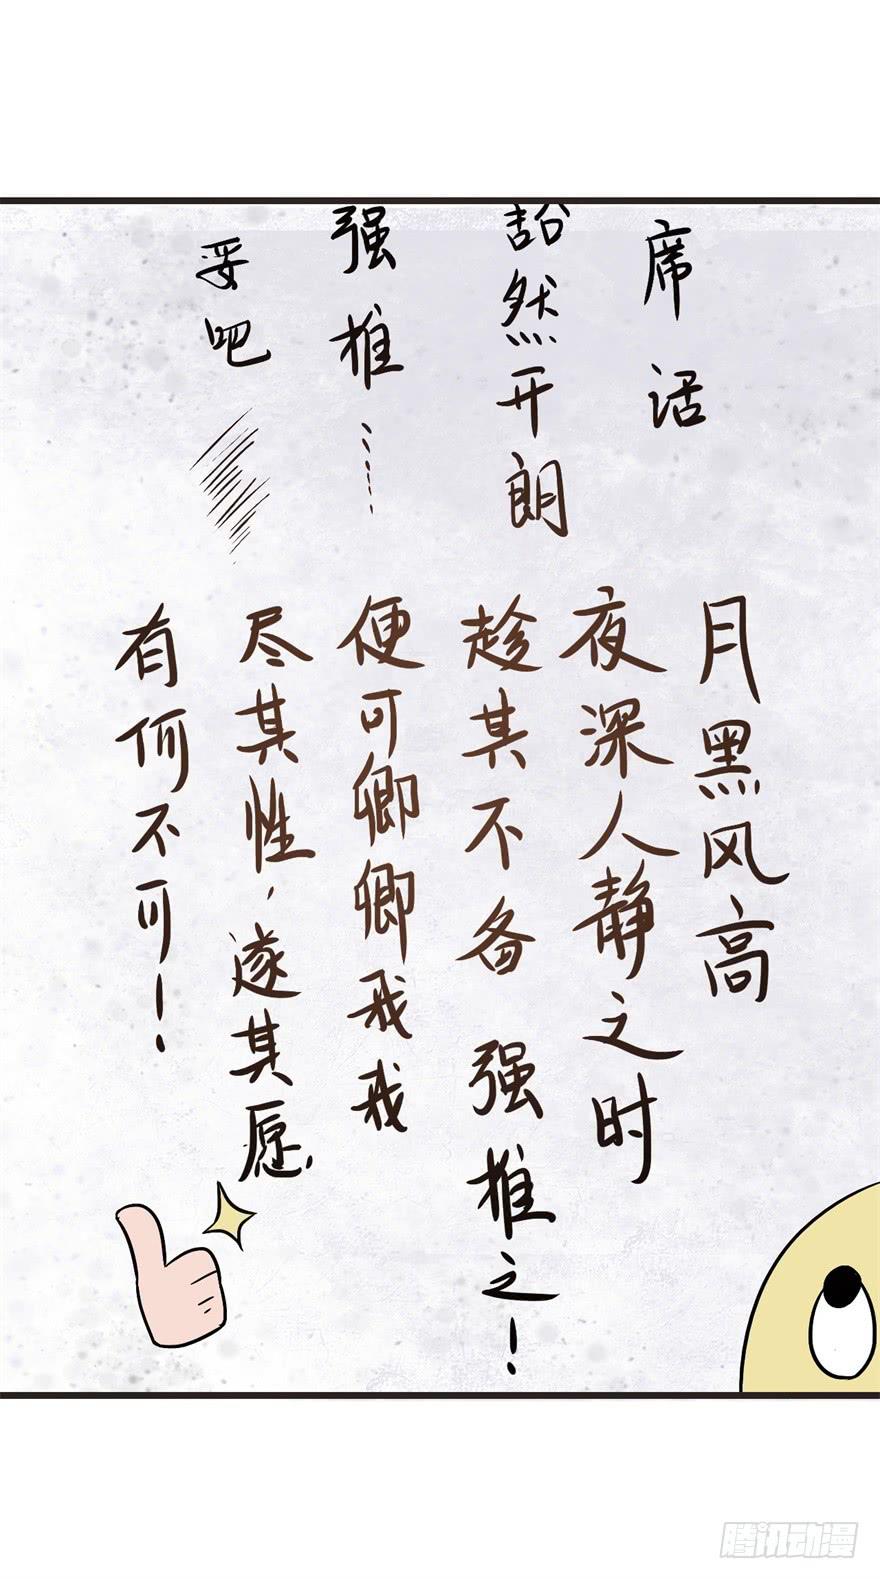 席话
豁然开朗
强推……
妥吧
月黑风高
夜深人静之时
趁其不备 强推之!
便可卿卿我我
尽其性,遂其愿,
有何不可!
腾讯动漫